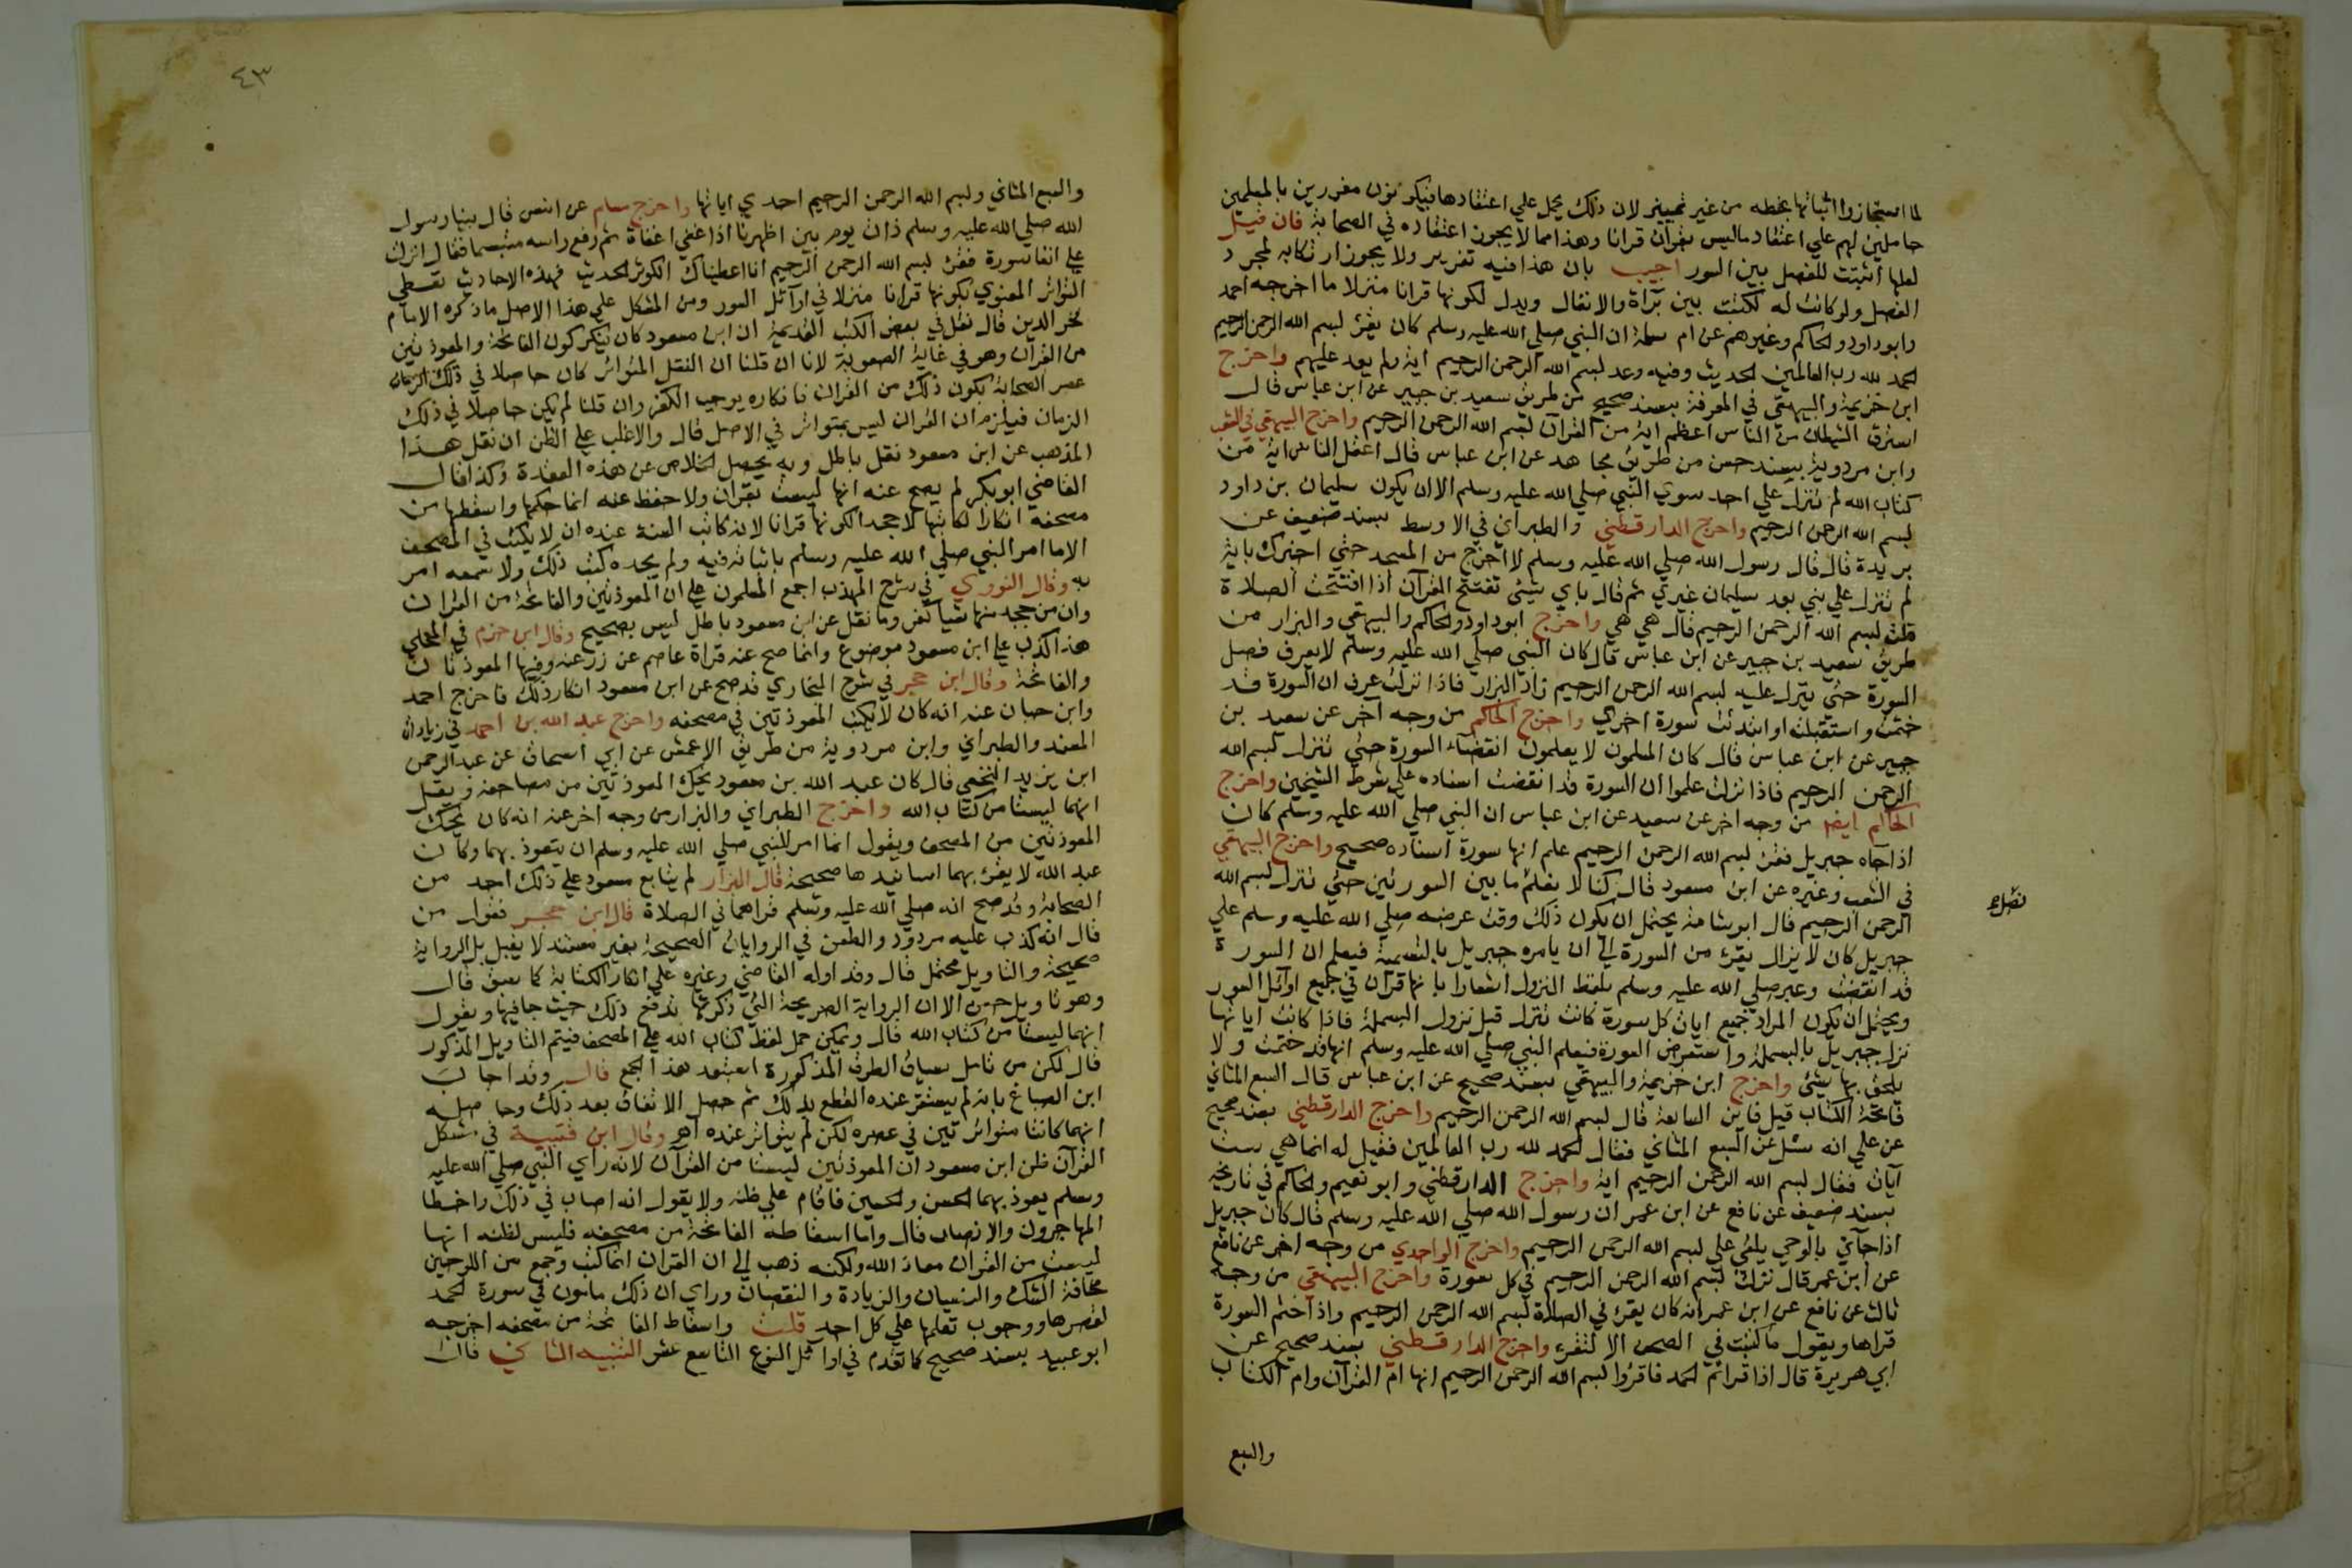 لما استجازوا اثباتها بخطه من غير تمييز لان ذلك يحمل علي اعتقادها فيكونون مغررين بالمسلمين
حاملين لهم علي اعتقاد ما ليس بقرآن قرانا وهذا مما لا يجوز اعتقاده في الصحابة فان قيل
لعلها اثبتت للفصل بين السور اجيب بان هذا فيه تغرير ولا يجوز ارتكابه لمجرد
الفصل ولو كانت له لكتبت بين براة والانفال ويدل لكونها قرانا منزلا ما اخرجه احمد
وابو داود والحاكم وغيرهم عن ام سلمة ان النبي صلي الله عليه وسلم كان يقرئ بسم الله الرحمن الرحيم
الحمد لله رب العالمين الحديث وفيه وعد بسم الله الرحمن الرحيم اية ولم يعد عليهم واخرج
ابن خزيمة والبيهقي في المعرفة بسند صحيح من طريق سعيد بن جبير عن ابن عباس قال
استرق الشيطان من الناس اعظم اية من القرآن بسم الله الرحمن الرحيم واخرج البيهقي في الشعب
وابن مردوية بسند حسن من طريق مجاهد عن ابن عباس قال اغفل الناس اية من
كتاب الله لم تنزل علي احد سوي النبي صلي الله عليه وسلم الا ان يكون سليمان بن داود
بسم الله الرحمن الرحيم واخرج الدارقطني والطبراني في الاوسط بسند ضعيف عن
بريدة قال قال رسول الله صلي الله عليه وسلم لا اخرج من المسجد حتي اخبرك باية
لم تنزل علي نبي بعد سليمان غيري ثم قال باي شيئ تفتتح القرآن اذا افتتحت الصلاة
قلت بسم الله الرحمن الرحيم قال هي هي واخرج ابو داود والحاكم والبيهقي والبزار من
طريق سعيد بن جبير عن ابن عباس قال كان النبي صلي الله عليه وسلم لا يعرف فصل
السورة حتي ينزل عليه بسم الله الرحمن الرحيم زاد البزار فاذا نزلت عرف ان السورة قد
ختمت واستقبلت او ابتدئت سورة اخري واخرج الحاكم من وجه آخر عن سعيد بن
جبير عن ابن عباس قال كان المسلمون لا يعلمون انقضآء السورة حتي تنزل بسم الله
الرحمن الرحيم فاذا نزلت علموا ان السورة قد انقضت اسناده علي شرط الشيخين واخرج
الحاكم ايضا من وجه اخر عن سعيد عن ابن عباس ان النبي صلي الله عليه وسلم كان
اذا جاه جبريل فقرئ بسم الله الرحمن الرحيم علم انها سورة اسناده صحيح واخرج البيهقي
في الشعب وغيره عن ابن مسعود قال كنا لا نعلم ما بين السورتين حتي تنزل بسم الله
الرحمن الرحيم قال ابو شامة يحتمل ان يكون ذلك وقت عرضه صلي الله عليه وسلم علي
جبريل كان لا يزال يقرئ من السورة الي ان يامره جبريل بالتسمية فيعلم ان السورة
قد انقضت وعبر صلي الله عليه وسلم بلفظ النزول اشعارا بانها قرآن في جميع اوآئل السور
ويحتمل ان يكون المراد جميع ايات كل سورة كانت تنزل قبل نزول البسملة فاذا كانت اياتها
نزل جبريل بالبسملة واستعرض السورة فيعلم النبي صلي الله عليه وسلم انها قد ختمت ولا
يلحق بها شيئ واخرج ابن خزيمة والبيهقي بسند صحيح عن ابن عباس قال السبع المثاني
فاتحة الكتاب قيل فاين السابعة قال بسم الله الرحمن الرحيم واخرج الدارقطني بسند صحيح
عن علي انه سئل عن السبع المثاني فقال الحمد لله رب العالمين فقيل له انما هي ست
آيات فقال بسم الله الرحمن الرحيم اية واخرج الدارقطني وابو نعيم والحاكم في تاريخه
بسند ضعيف عن نافع عن ابن عمر ان رسول الله صلي الله عليه وسلم قال كان جبريل
اذا جآئي بالوحي يلقي علي بسم الله الرحمن الرحيم واخرج الواحدي من وجه اخر عن نافع
عن ابن عمر قال نزلت بسم الله الرحمن الرحيم في كل سورة واخرج البيهقي من وجه
ثالث عن نافع عن ابن عمر انه كان يقرئ في الصلاة بسم الله الرحمن الرحيم واذا ختم السورة
قراها ويقول ما كتبت في الصحف الا لتقرئ واخرج الدارقطني بسند صحيح عن
ابي هريرة قال اذا قراتم الحمد فاقرؤا بسم الله الرحمن الرحيم انها ام القرآن وام الكتاب
والسبع
٤٣
والسبع المثاني وبسم الله الرحمن الرحيم احدي اياتها واخرج مسلم عن انس قال بينا رسول
الله صلي الله عليه وسلم ذات يوم بين اظهرنا اذ اغفي اغفاة ثم رفع راسه متبسما فقال انزلت
علي انفا سورة فقرئ بسم الله الرحمن الرحيم انا اعطيناك الكوثر الحديث فهذه الاحاديث تعطي
التواتر المعنوي بكونها قرانا منزلا في اوآئل السور ومن المشكل علي هذا الاصل ما ذكره الامام
فخر الدين قال نقل في بعض الكتب القديمة ان ابن مسعود كان ينكر كون الفاتحة والمعوذتين
من القرآن وهو في غاية الصعوبة لانا ان قلنا ان النقل المتواتر كان حاصلا في ذلك الزمان
عصر الصحابة بكون ذلك من القران فانكاره يوجب الكفر وان قلنا لم يكن حاصلا في ذلك
الزمان فيلزم ان القران ليس بمتواتر في الاصل قال والاغلب علي الظن ان نقل هذا
المذهب عن ابن مسعود نقل باطل وبه يحصل الخلاص عن هذه العقدة وكذا قال
القاضي ابو بكر لم يصح عنه انها ليست بقران ولا حفظ عنه انما حكها واسقطها من
مصحفه انكارا لكتابتها لا جحدا لكونها قرانا لانه كانت السنة عنده ان لا يكتب في المصحف
الا ما امر النبي صلي الله عليه وسلم باثباته فيه ولم يجده كتب ذلك ولا سمعه امر
به وقال النووي في شرح المهذب اجمع المسلمون علي ان المعوذتين والفاتحة من القران
وان من جحد منها شيا كفر وما نقل عن ابن مسعود باطل ليس بصحيح وقال ابن حزم في المحلي
هذا كذب علي ابن مسعود موضوع وانما صح عنه قراة عاصم عن زر عنه وفيها المعوذتان
والفاتحة وقال ابن حجر في شرح البخاري قد صح عن ابن مسعود انكار ذلك فاخرج احمد
وابن حبان عنه انه كان لا يكتب المعوذتين في مصحفه واخرج عبد الله بن احمد في زيادات
المسند والطبراني وابن مردوية من طريق الاعمش عن ابي اسحاق عن عبد الرحمن
ابن يزيد النخعي قال كان عبد الله بن مسعود يحك المعوذتين من مصاحفه ويقل
انهما ليستا من كتاب الله واخرج الطبراني والبزار من وجه اخر عنه انه كان يحك
المعوذتين من المصحف ويقول انما امر النبي صلي الله عليه وسلم ان يتعوذ بهما وكان
عبد الله لا يقرئ بهما اسانيدها صحيحة قال البزار لم يتابع مسعود علي ذلك احد من
الصحابة وقد صح انه صلي الله عليه وسلم قراهما في الصلاة قال ابن حجر فقول من
قال انه كذب عليه مردود والطعن في الروايات الصحيحة بغير مستند لا يقبل بل الرواية
صحيحة والتاويل محتمل قال وقد اوله القاضي وغيره علي انكار الكتابة كما سبق قال
وهو تاويل حسن الا ان الرواية الصريحة التي ذكرتها تدفع ذلك حيث جا فيها ويقول
انهما ليستا من كتاب الله قال ويمكن حمل لفظ كتاب الله علي المصحف فيتم التاويل المذكور
قال لكن من تامل سياق الطرف المذكورة استبعد هذا الجمع قال وقد اجاب
ابن الصباغ بانه لم يستقر عنده القطع بذلك ثم حصل الاتفاق بعد ذلك وحاصله
انهما كانتا متواترتين في عصره لكن لم يتواتر عنده اهر وقال ابن قتيبة في مشكل
القرآن ظن ابن مسعود ان المعوذتين ليستا من القرآن لانه راي النبي صلي الله عليه
وسلم يعوذ بهما الحسن والحسين فاقام علي ظنه ولا يقول انه اصاب في ذلك واخطا
المهاجرون والانصار قال واما اسقاطه الفاتحة من مصحفه فليس لظنه انها
ليست من القران معاذ الله ولكنه ذهب الي ان القران انما كتب وجمع من اللوحين
مخافة الشك والنسيان والزيادة والنقصان وراي ان ذلك مامون في سورة الحمد
لقصرها ووجوب تعلمها علي كل احد قلت واسقاط الفاتحة من مصحفه اخرجه
ابو عبيد بسند صحيح كما تقدم في اوائل النوع التاسع عشر التنبيه الثاني قال